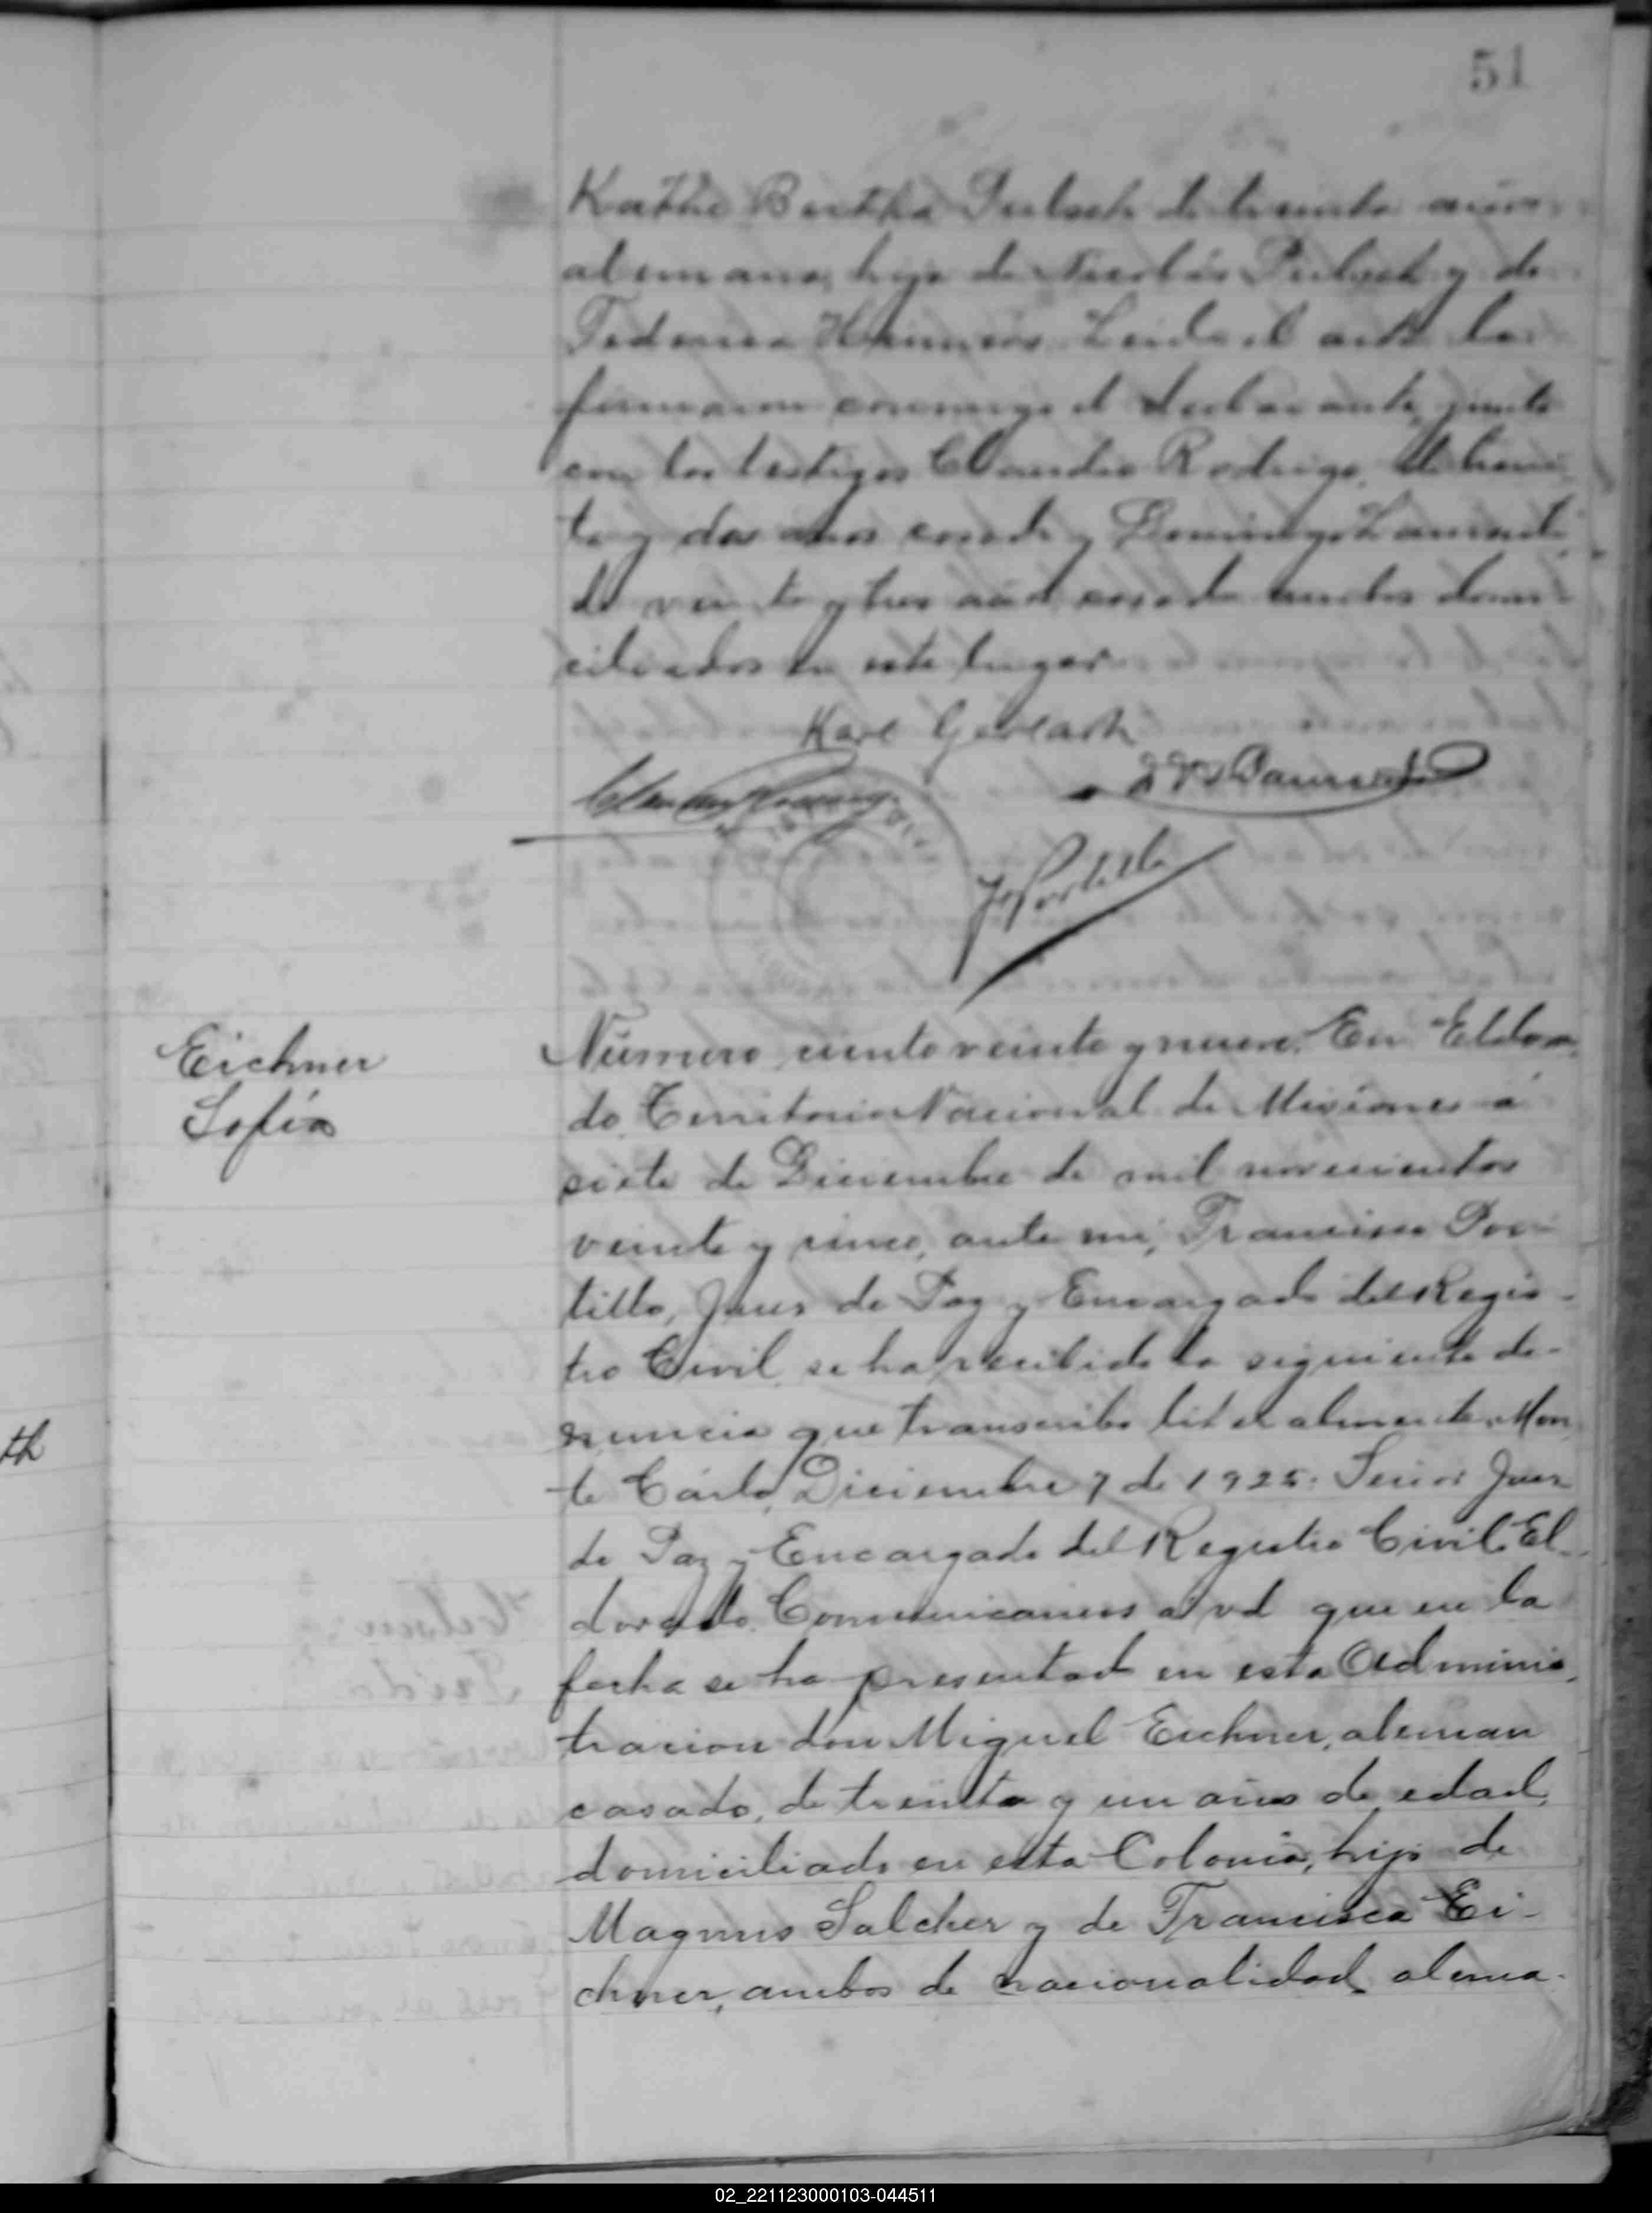 51
Kathe Bertha de treinta años
alemana, hija de Nicolás y de
Federica Leida el acta la
firmaron conmigo el declarante, junto
con los testigos Claudio Rodrigo, de trein-
ta y dos años casado y Domingo
de veinte y tres años casado ambos domi-
ciliados en este lugar
Karl Gerlach
Portillo
Eichner
Sofía
Número ciento veinte y nueve. En Eldora-
do, Territorio Nacional de Misiones á
siete de Diciembre de mil novecientos
veinte y cinco, ante mi, Francisco Por-
tillo, Juez de Paz y Encargado del Regis-
tro Civil, se ha recibido la siguiente de-
nuncia que transcribo literalmente. Mon-
te Carlo, Diciembre 7 de 1925. Señor Juez
de Paz y Encargado del Registro Civil El-
dorado. Comunicamos a vd que en la
fecha se ha presentado en esta Adminis-
tracion don Miguel Eichner, aleman
casado, de treinta y un años de edad,
domiciliado en esta Colonia, hijo de
Magnus Salcher y de Francisca Ei-
chner, ambos de nacionalidad alema-
th
02_221123000103-044511